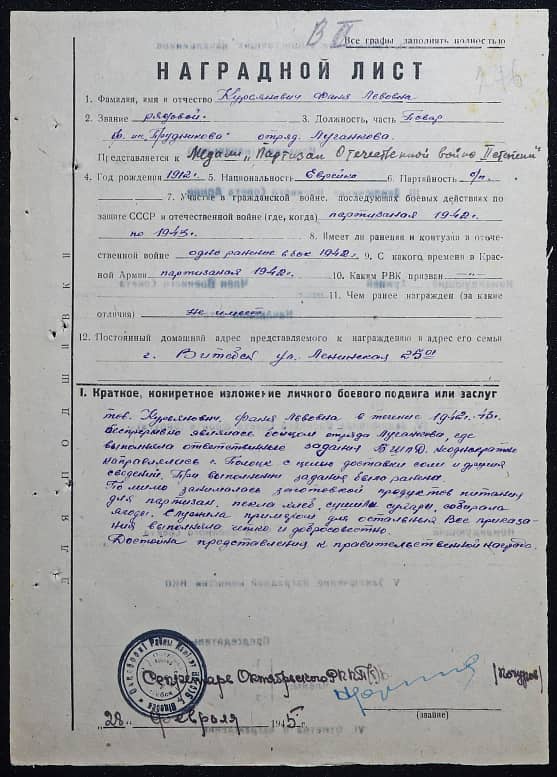 В III
Все графы заполнять полностью
НАГРАДНОЙ ЛИСТ
1. Фамилия, имя и отчество Курсянович Фаня Львовна
2. Звание рядовой. 3. Должность, часть Повар
отряд. Лугайкова.
Представляется к Медали „Партизан Отечественной войны II степени"
4. Год рождения 1912 г. 5. Национальность Еврейка 6. Партийность б/п.
7. Участие в гражданской войне, последующих боевых действиях по
защите СССР и отечественной войне (где, когда) партизаная 1942 г.
по 1943 г. 8. Имеет ли ранения и контузии в отече-
ственной войне одно ранение 1942 г. 9. С какого времени в Крас
ной Армии партизаная 1942 г. 10. Каким РВК призван —"—
11. Чем ранее награжден (за какие
отличия) не имеет
12. Постоянный домашний адрес представляемого к награждению и адрес его семьи
г. Витебск ул. Ленинская
I. Краткое, конкретное изложение личного боевого подвига или заслуг
тов. Курсянович, Фаня Львовна в течение 1942 г.-43 г.
Беспрерывно являлась бойцом отряда где
выполняла ответственно задания неоднократно
направлялись г. Полоцк с целью доставки соли и других
сведений. При выполнении задания была ранена.
Помимо занималась заготовкой продуктов питания
для партизан, пекла хлеб, сушила сухари, собирала
ягоды. Служила примером для остальных Все приказа-
ния выполняла чётко и добросовестно.
Достойна представления к правительственной награде.
ДЛЯ ПОДШИВКИ
Секретарь Октябрьского РК КП(б)Б
„28" февраля 1945 г.
(звание)